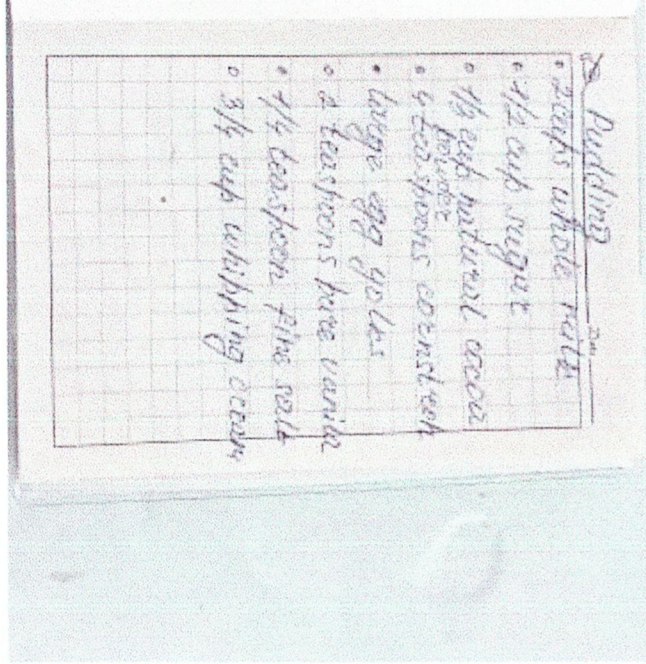 Pudding
• 2 cups whole milk
• 1/2 cup sugar
• 1/3 cup natural cocoa
powder
• 4 teaspoons cornstrech
• large egg yolks
• 2 teaspoons pure vanila
• 1/4 teaspoon fine salt
• 3/4 cup whipping cream